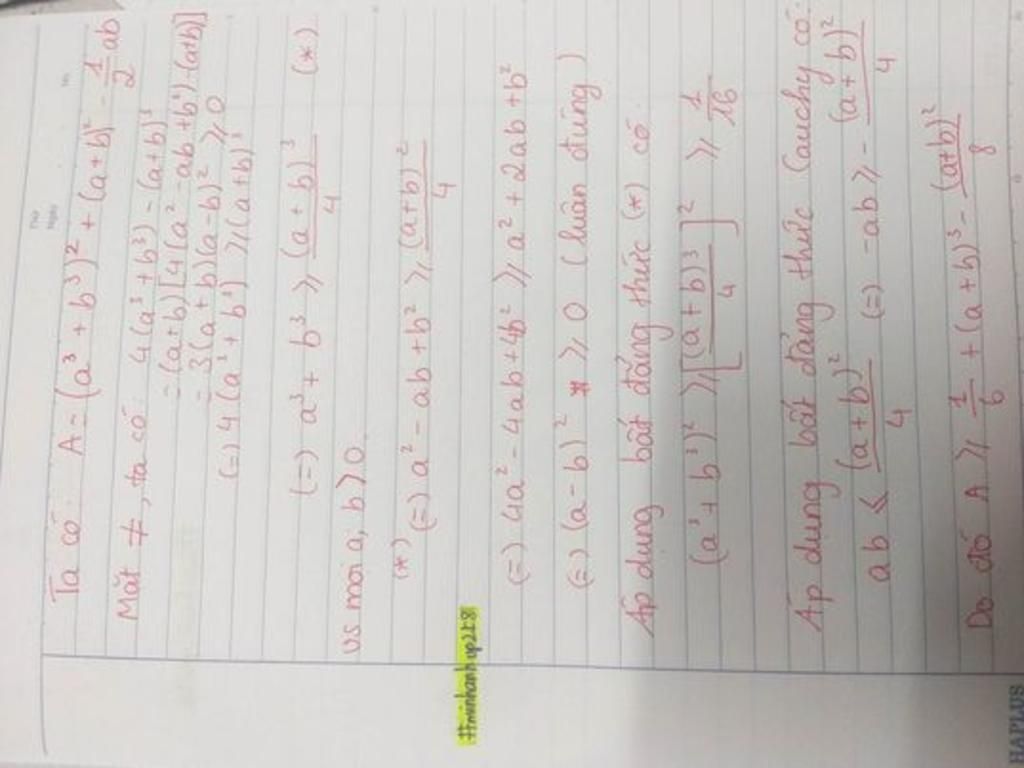 Thứ
Ngày
No.
Ta có: A = (a³ + b³)² + (a+b)² - 1/2 ab
Mặt ≠, ta có: 4(a³ + b³) - (a+b)³
= (a+b)[4(a² - ab + b²) - (a+b)]
= 3(a+b)(a-b)² ≥ 0
(=) 4(a³ + b³) ≥ (a+b)³
(=) a³ + b³ ≥ (a+b)³/4 (*)
vs mọi a, b > 0
(*)
(=) a² - ab + b² ≥ (a+b)²/4
(=) 4a² - 4ab + 4b² ≥ a² + 2ab + b²
(=) (a-b)² ≥ 0 (luôn đúng)
Áp dụng bất đẳng thức (*) có
(a³ + b³)² ≥ [(a+b)³/4]² ≥ 1/16
Áp dụng bất đẳng thức Cauchy có:
ab ≤ (a+b)²/4 (=) -ab ≥ -(a+b)²/4
Do đó A ≥ 1/6 + (a+b)³ - (a+b)²/8
#minhanhup2k8
HAPLUS